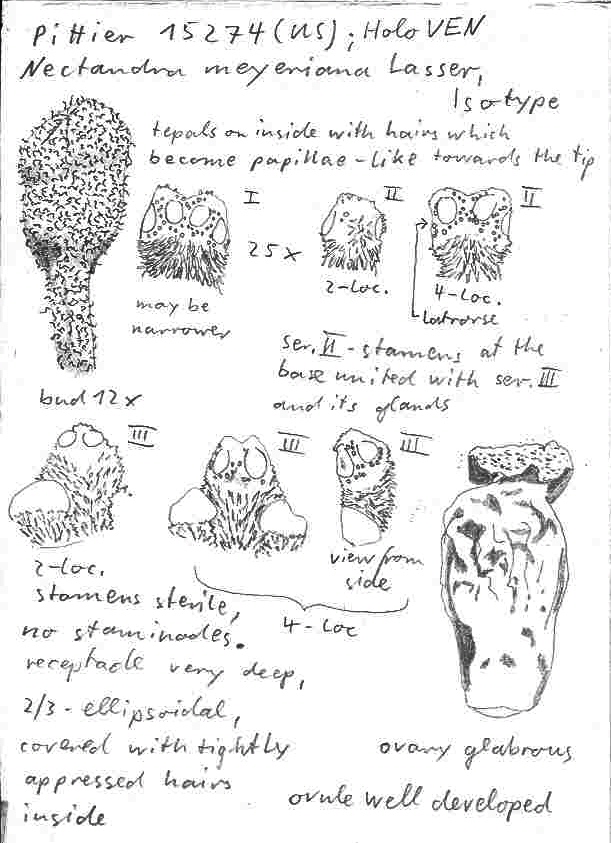 Pittier 15274 (US); Holo VEN
Nectandra meyeriana Lasser,
Isotype
tepals on inside with hairs which
become papillae-like towards the tip
I
II
II
25 x
2-loc.
4-loc.
latrorse
may be
narrower
ser. II - stamens at the
base united with ser. III
and its glands
bud 12 x
III
III
III
2-loc.
view from
side
4-loc
stamens sterile,
no staminodes.
receptacle very deep,
2/3 - ellipsoidal,
covered with tightly
appressed hairs
inside
ovary glabrous
ovule well developed